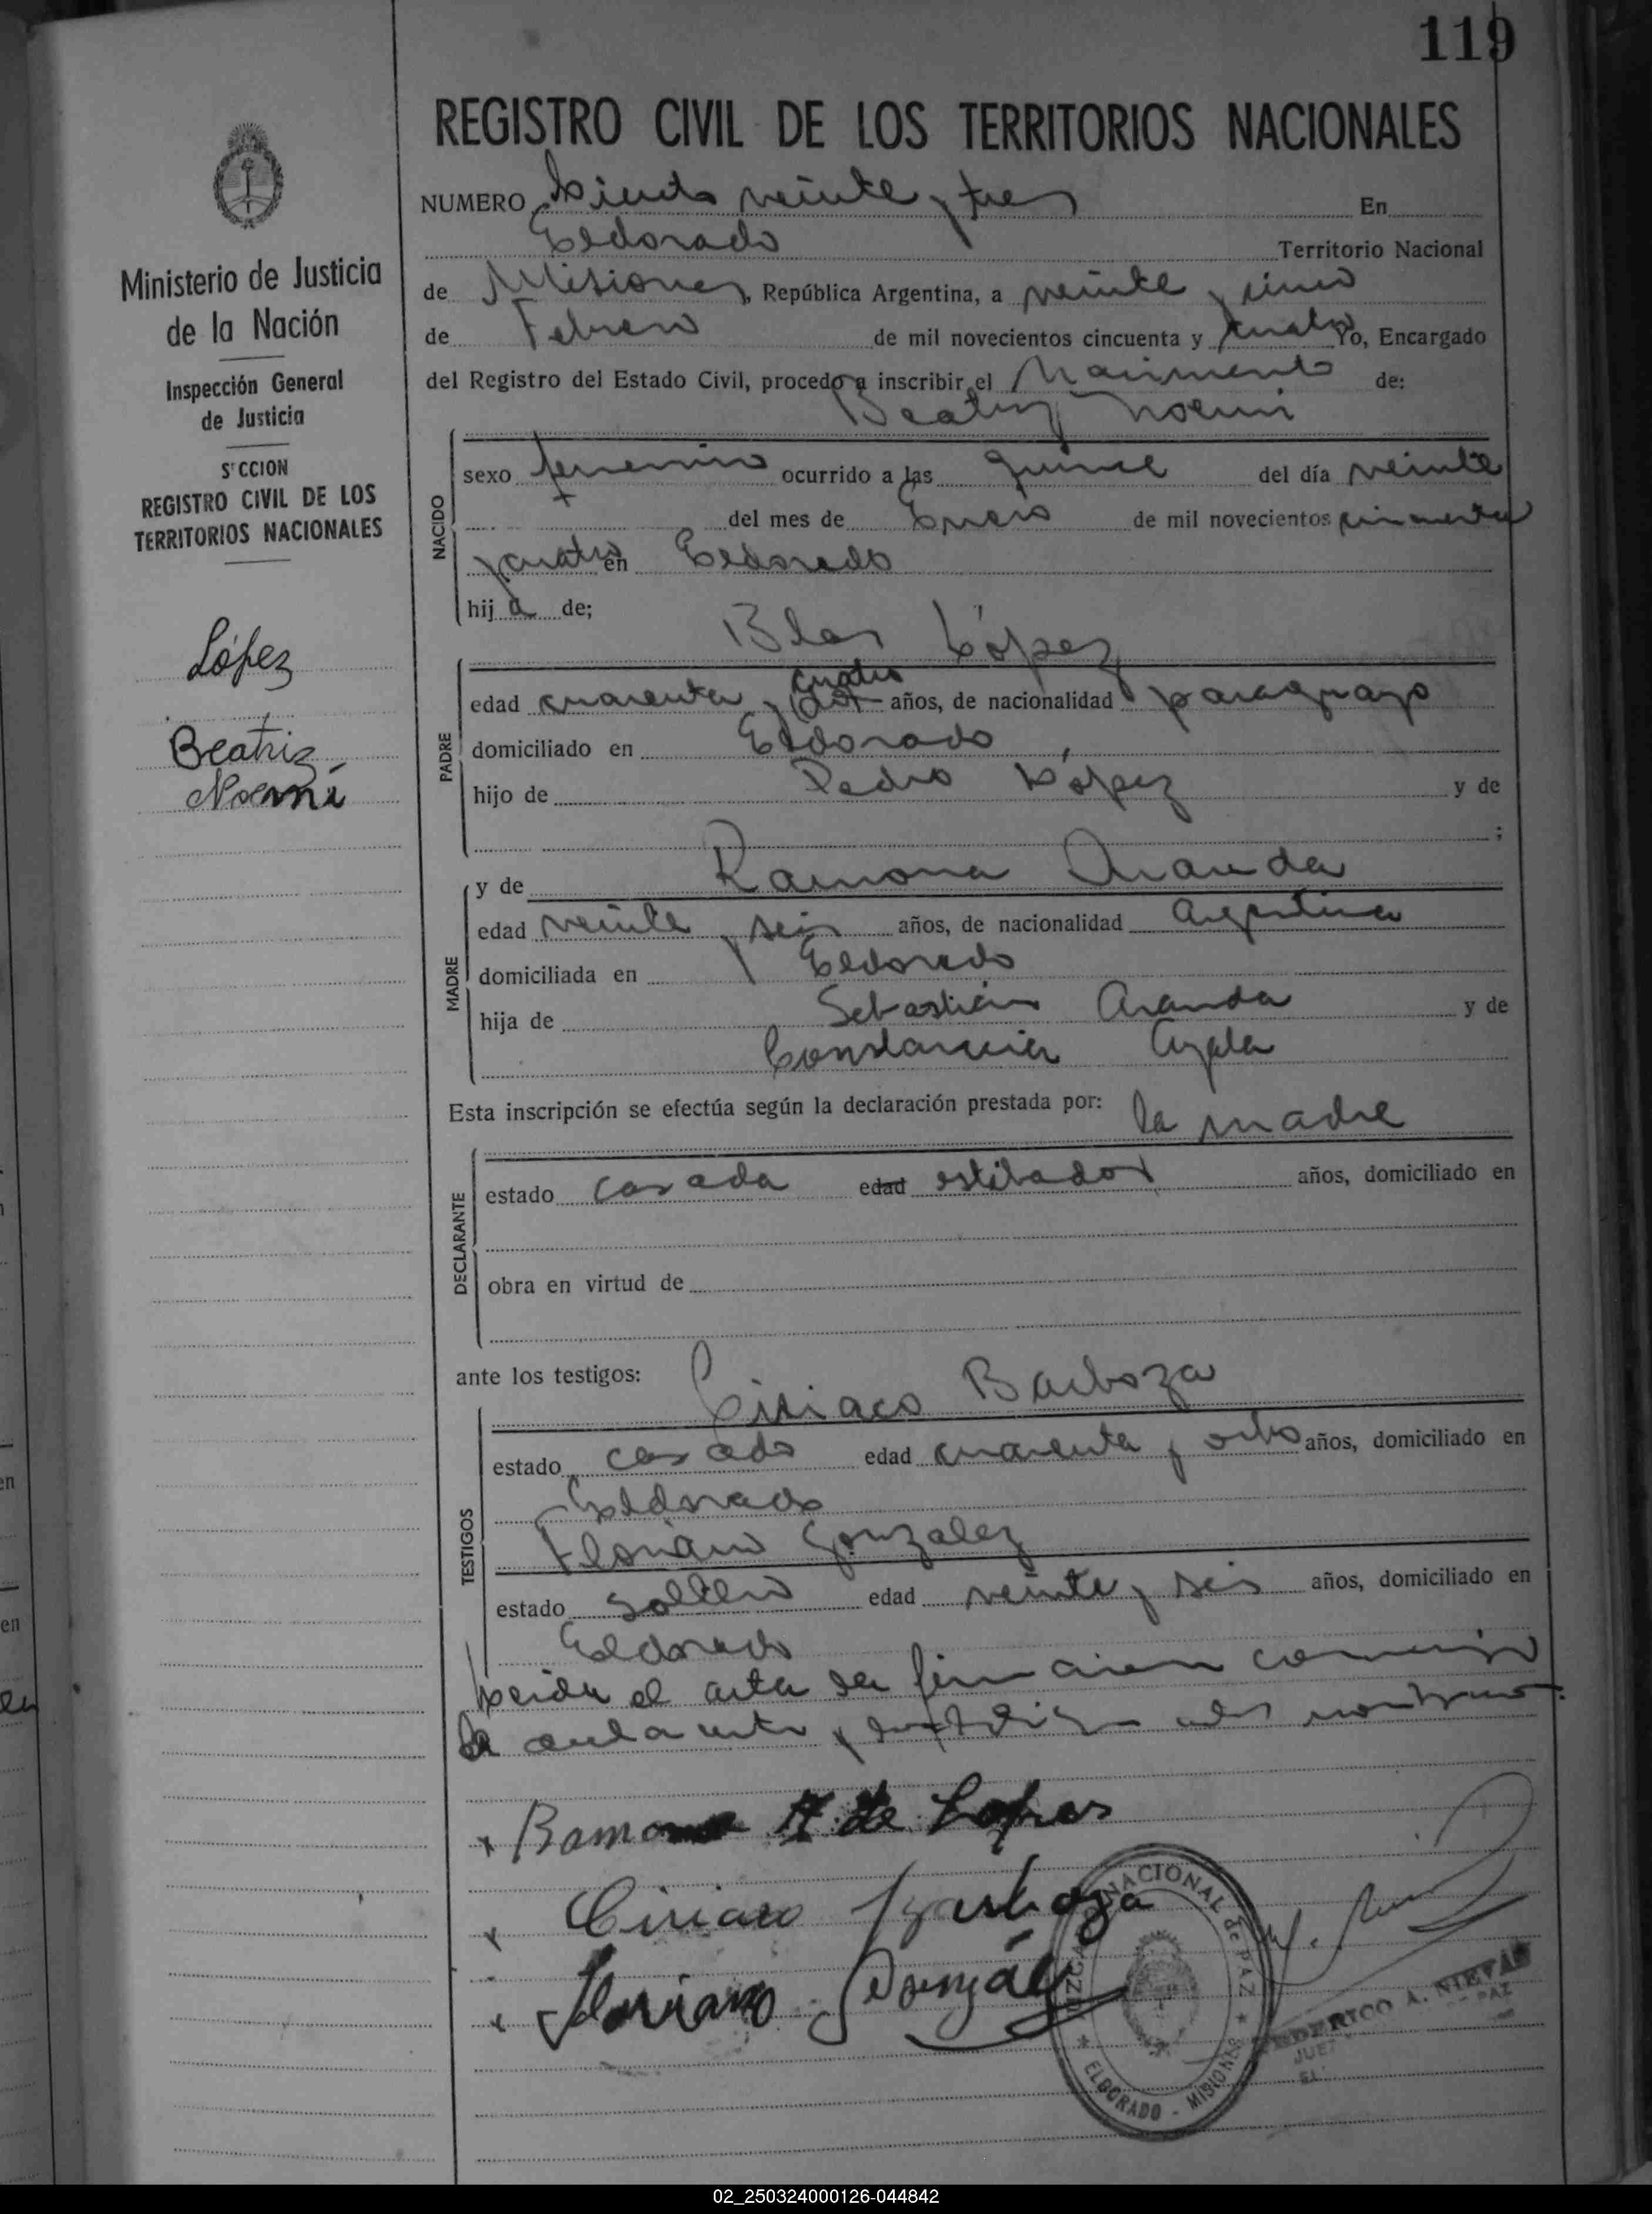 119
REGISTRO CIVIL DE LOS TERRITORIOS NACIONALES
Ministerio de Justicia
de la Nación
Inspección General
de Justicia
S CCION
REGISTRO CIVIL DE LOS
TERRITORIOS NACIONALES
López
Beatriz
Noemí
NUMERO Ciento veinte y tres En
Eldorado Territorio Nacional
de Misiones, República Argentina, a veinte y cinco
de Febrero de mil novecientos cincuenta y cuatro Yo, Encargado
del Registro del Estado Civil, procedo a inscribir el Nacimiento de:
Beatriz Noemi
NACIDO
sexo femenino ocurrido a las quince del día veinte
del mes de Enero de mil novecientos cincuenta
y cuatro en Eldorado
hij a de;
Blas López
PADRE
cuatro
edad cuarenta y años, de nacionalidad paraguayo
domiciliado en Eldorado
hijo de Pedro López y de
;
y de Ramona Aranda
MADRE
edad veinte y seis años, de nacionalidad argentina
domiciliada en Eldorado
hija de Sebastián Aranda y de
Constancia Ayala
Esta inscripción se efectúa según la declaración prestada por: la madre
DECLARANTE
estado casada edad estibador años, domiciliado en
obra en virtud de
ante los testigos: Ciriaco Barboza
TESTIGOS
estado casado edad cuarenta y ocho años, domiciliado en
Eldorado
Floriano Gonzalez
estado soltero edad veinte y seis años, domiciliado en
Eldorado
Leida el acta la firmaron conmigo
Ramona A de Lopes
Ciriaco Barboza
Floriano González
NACIONAL de PAZ
ELDORADO - MISIONES
FEDERICO A. NIEVAS
JUEZ PAZ
EL
02_250324000126-044842